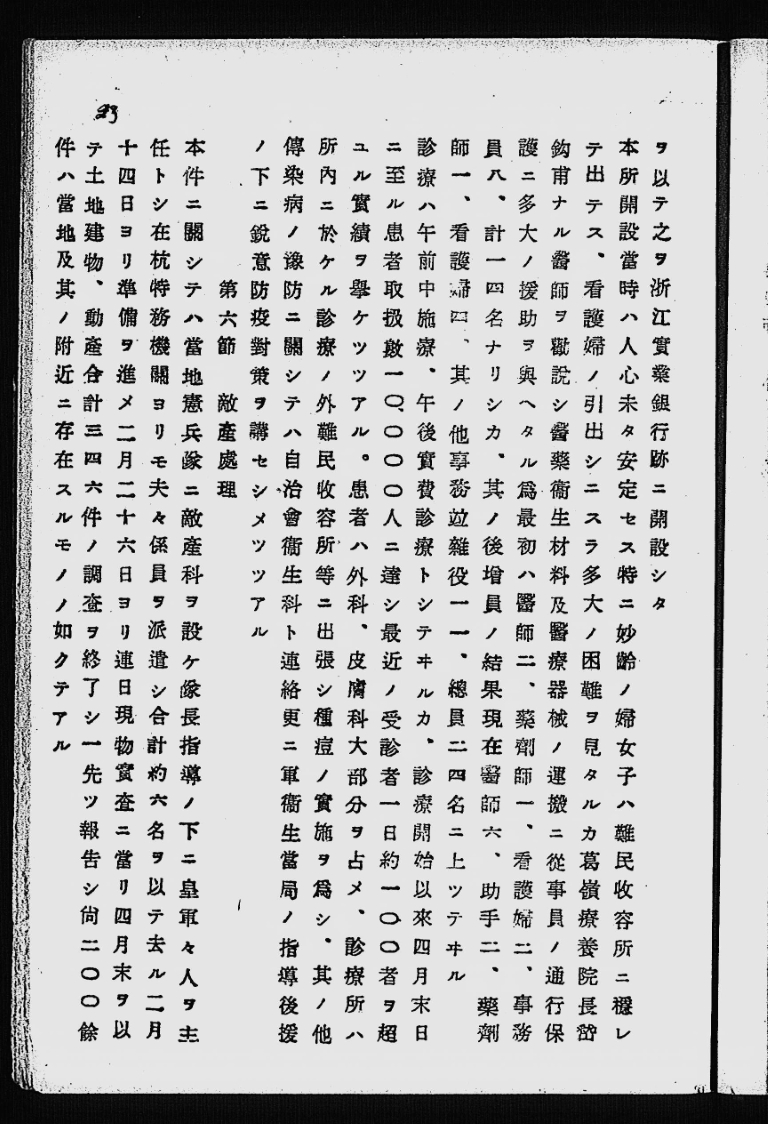 93
ヲ以テ之ヲ浙江實業銀行跡ニ開設シタ
本所開設當時ハ人心未タ安定セス特ニ妙齡ノ婦女子ハ難民收容所ニ穩レ
テ出テス、看護婦ノ引出シニスラ多大ノ困難ヲ見タルカ葛嶺療養院長
鈎甫ナル醫師ヲ勸說シ醫藥衞生材料及醫療器械ノ運搬ニ從事員ノ通行保
護ニ多大ノ援助ヲ與ヘタル爲最初ハ醫師二、藥劑師一、看護婦二、事務
員八、計一四名ナリシカ、其ノ後增員ノ結果現在醫師六、助手二、藥劑
師一、看護婦四、其ノ他事務竝雜役一一、總員二四名ニ上ツテヰル
診療ハ午前中施療、午後實費診療トシテヰルカ、診療開始以來四月末日
ニ至ル患者取扱數一〇、〇〇〇人ニ達シ最近ノ受診者一日約一〇〇者ヲ超
ユル實績ヲ擧ケツツアル。患者ハ外科、皮膚科大部分ヲ占メ、診療所ハ
所內ニ於ケル診療ノ外難民收容所等ニ出張シ種痘ノ實施ヲ爲シ、其ノ他
傳染病ノ豫防ニ關シテハ自治會衞生科ト連絡更ニ軍衞生當局ノ指導後援
ノ下ニ銳意防疫對策ヲ講セシメツツアル
第六節　敵產處理
本件ニ關シテハ當地憲兵隊ニ敵產科ヲ設ケ隊長指導ノ下ニ皇軍々人ヲ主
任トシ在杭特務機關ヨリモ夫々係員ヲ派遣シ合計約六名ヲ以テ去ル二月
十四日ヨリ準備ヲ進メ二月二十六日ヨリ連日現物實查ニ當リ四月末ヲ以
テ土地建物、動產合計三四六件ノ調查ヲ終了シ一先ツ報告シ尙二〇〇餘
件ハ當地及其ノ附近ニ存在スルモノノ如クテアル